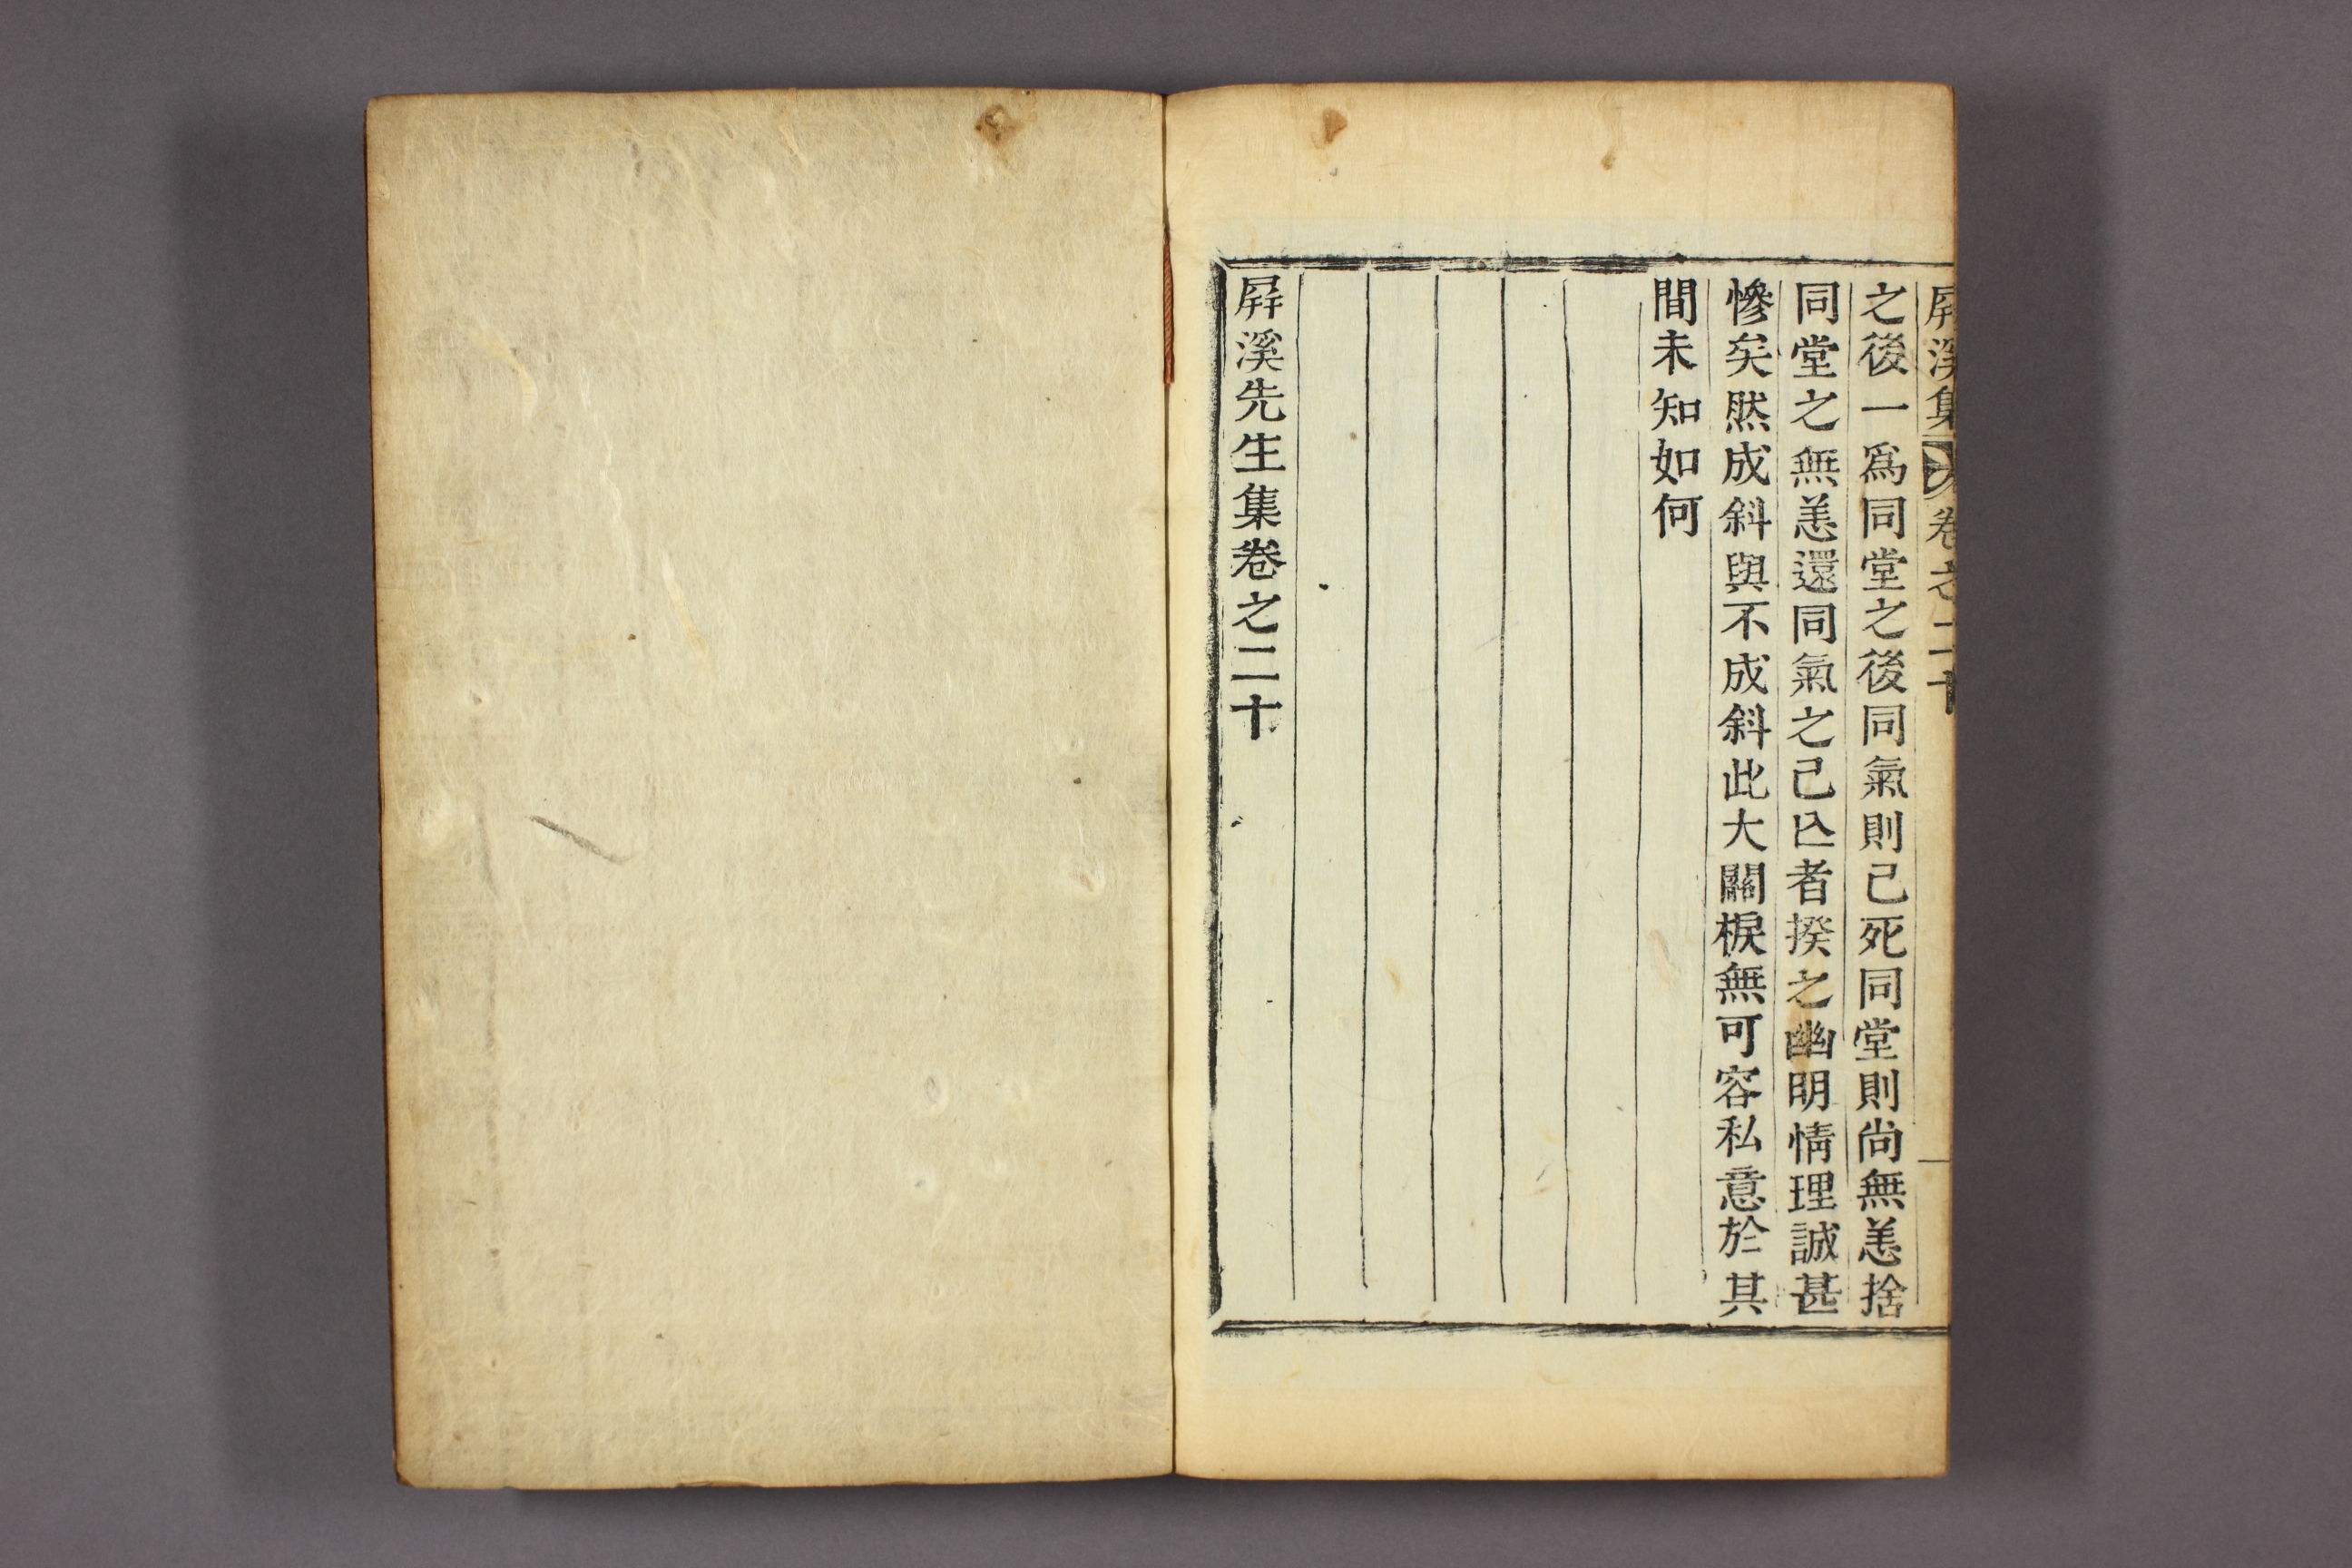 屛溪集 卷之二十
之後一爲同堂之後同氣則己死同堂則尙無恙捨
同堂之無恙還同氣之己亾者揆之幽明情理誠甚
慘矣然成斜與不成斜此大關棙無可容私意於其
間未知如何
屛溪先生集卷之二十